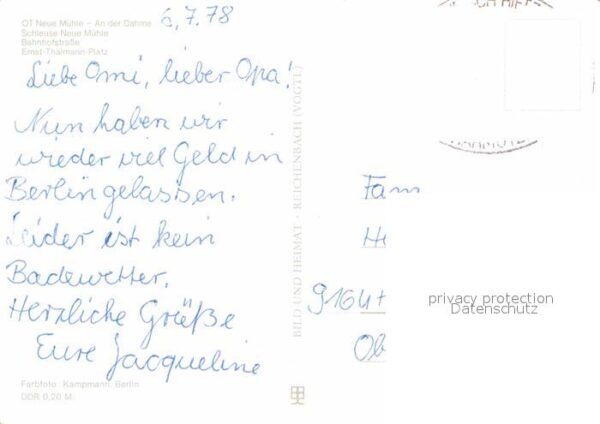 OT Neue Mühle – An der Dahme
Schleuse Neue Mühle
Bahnhofstraße
Ernst-Thälmann-Platz
6.7.78
Liebe Omi, lieber Opa!
Nun haben wir
wieder viel Geld in
Berlin gelassen.
Leider ist kein
Badewetter.
Herzliche Grüße
Eure Jacqueline
Farbfoto: Kampmann, Berlin
DDR 0,20 M
BILD UND HEIMAT · REICHENBACH (VOGTL)
Fam
He
9164
Ob
privacy protection
Datenschutz